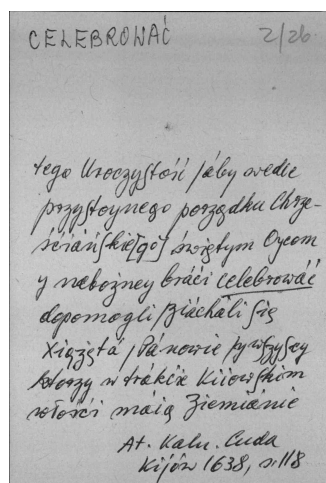 CELEBROWAĆ 2/26
tego Uroczystość /áby wedle
przystoynego porządku Chrze-
śćiáńskie[go] świętym Oycom
y nabożney bráći celebrowáć
dopomogli / ziácháli się
Xiążętá / Pánowie y wszyscy
ktorzy w trákćie Kiiowskim
włośći máią Ziemiánie
At. Kaln. Cuda
Kijów 1638, s. 118